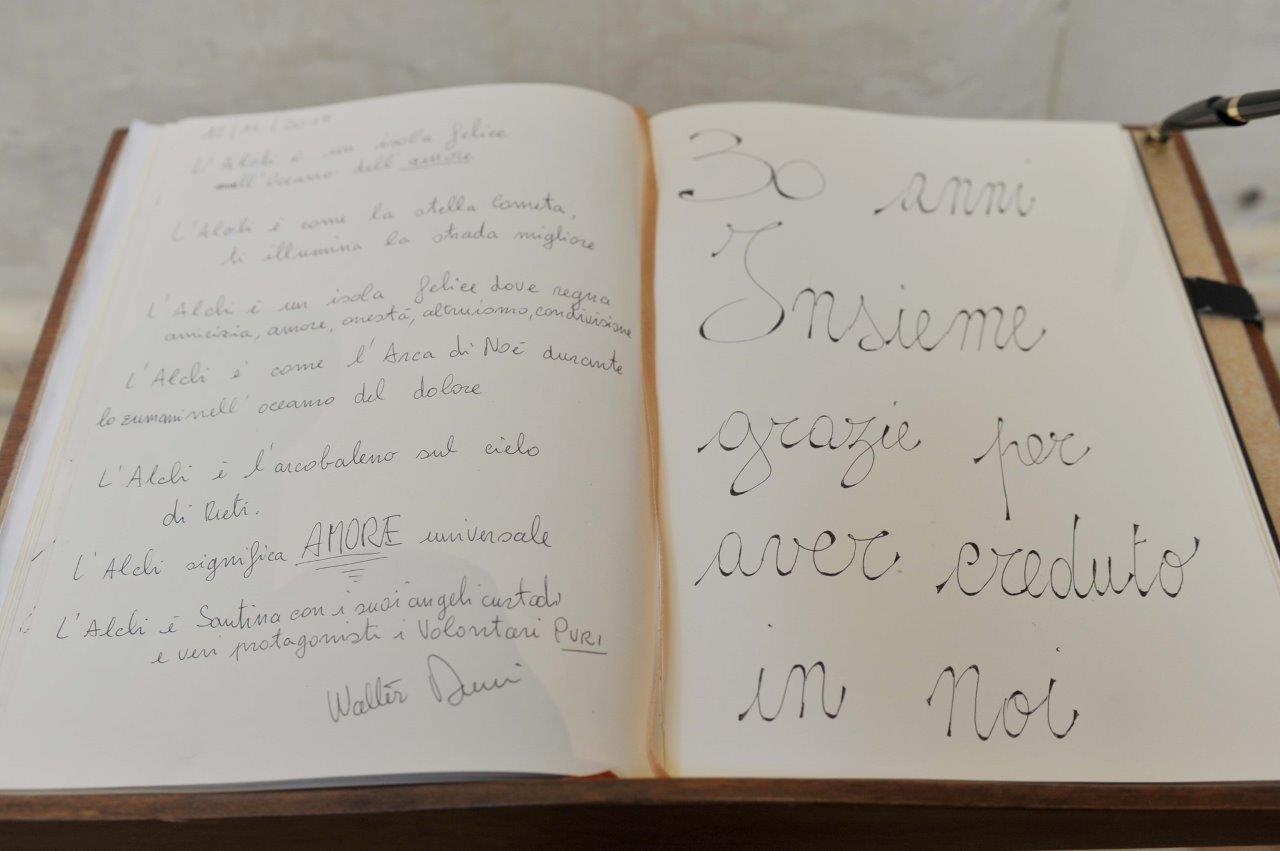 L'Alcli è un isola felice
nell'Oceano dell'amore
L'Alcli è come la stella Cometa,
ti illumina la strada migliore
L'Alcli è un isola felice dove regna
amicizia, amore, onestá, altruismo, condivisione
L'Alcli è come l'Arca di Noè durante
lo zumani nell'oceano del dolore
L'Alcli è l'arcobaleno sul cielo
di Rieti.
L'Alcli significa AMORE universale
L'Alcli è Santina con i suoi angeli custodi
e veri protagonisti i Volontari PURI
Walter
30 anni
Insieme
grazie per
aver creduto
in Noi